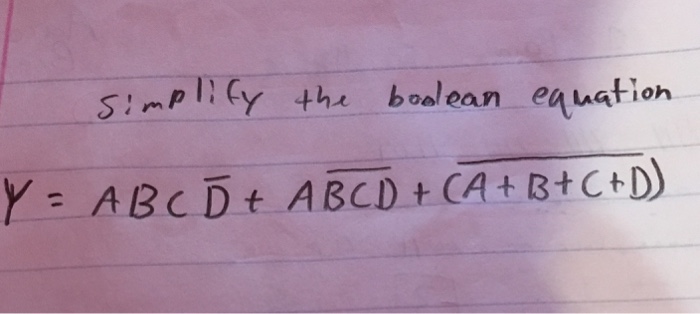 simplify the boolean equation
Y = ABCD̅ + AB̅C̅D̅ + (A̅+̅B̅+̅C̅+̅D̅)